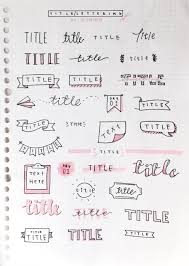 TITLE LETTERING
TITLE title TITLE title
TITLE title TITLE
TITLE TITLE
title title TITLE TITLE
TITLE TITLE TEXT
TITLE
TEXT HERE TITLE title
title TITLE
title title TITLE
TITLE TITLE title